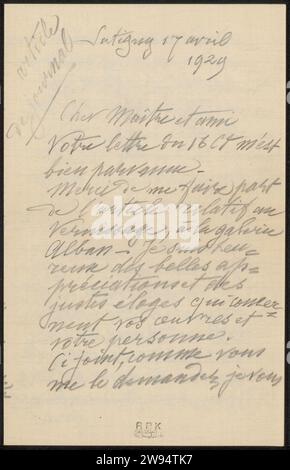 article
de journal
Satigny 17 avril
1929
Cher Maître et ami
Votre lettre du 16 Ct m'est
bien parvenue.
Merci de me faire part
de l'article relatif au
Vernissage, à la galerie
Alban – Je suis heu=
reux des belles ap=
préciations et des
justes éloges qui concer=
nent vos œuvres et
votre personne.
Ci joint, comme vous
me le demandez, je vous
R.P.K
alamy
Image ID: 2W94TK7
www.alamy.com